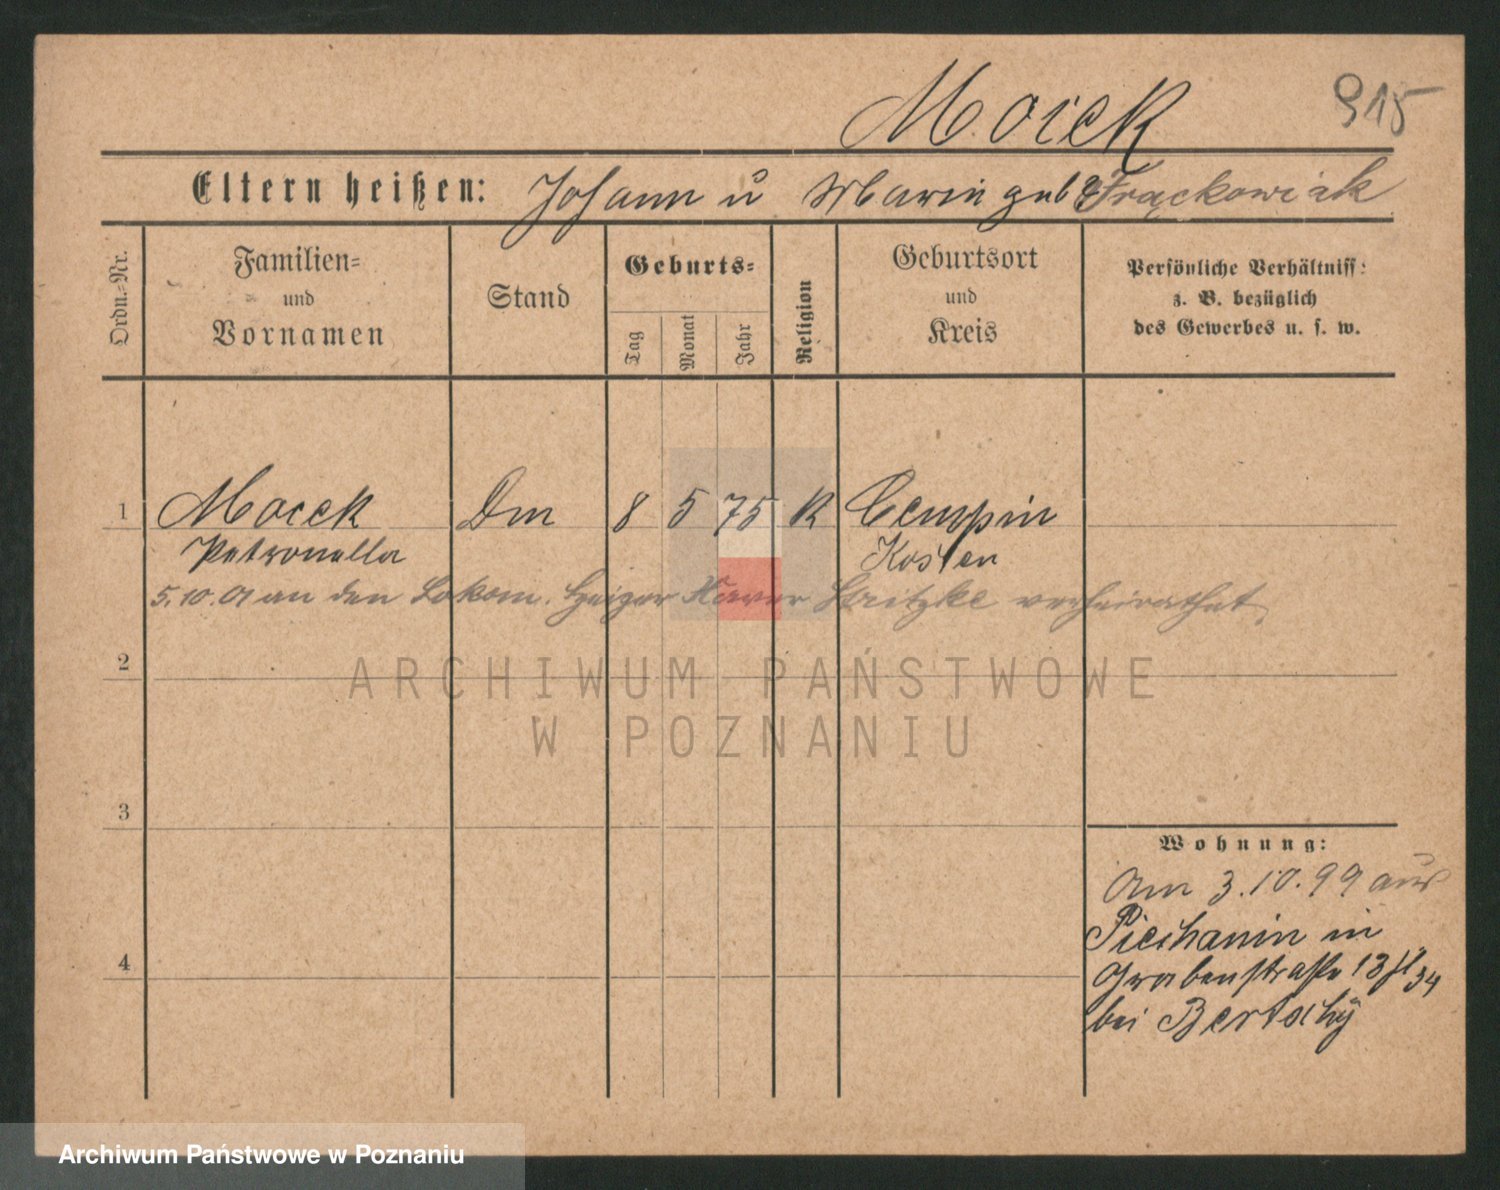 Mocek
915
Eltern heißen: Johann u Marie geb Frąckowiak
Ordn.-Nr.
Familien-
und
Vornamen
Stand
Geburts-
Tag
Monat
Jahr
Religion
Geburtsort
und
Kreis
Persönliche Verhältniss:
z. B. bezüglich
des Gewerbes u. s. w.
1 Mocek Dm 8 5 75 K Czempin
Petronella Kosten
5.10.01 an den Lokom. Heizer Xaver verheirathet
2
3
4
Wohnung:
Am 3.10.99 aus
Piechanin in
Grabenstraße 13
bei
ARCHIWUM PAŃSTWOWE
W POZNANIU
Archiwum Państwowe w Poznaniu